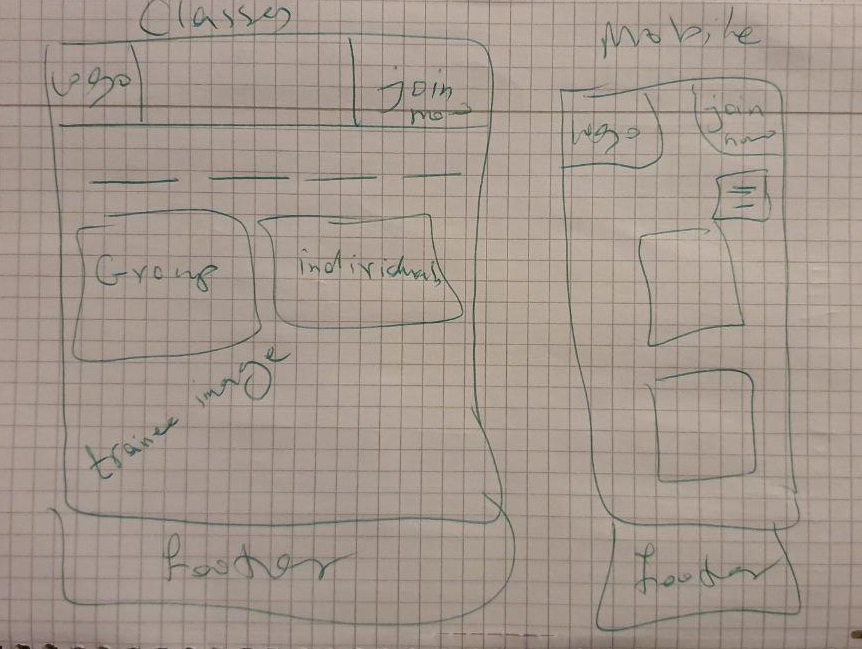 Classes
Logo
join
now
Group
individual
trainer image
footer
Mobile
Logo
join
now
footer